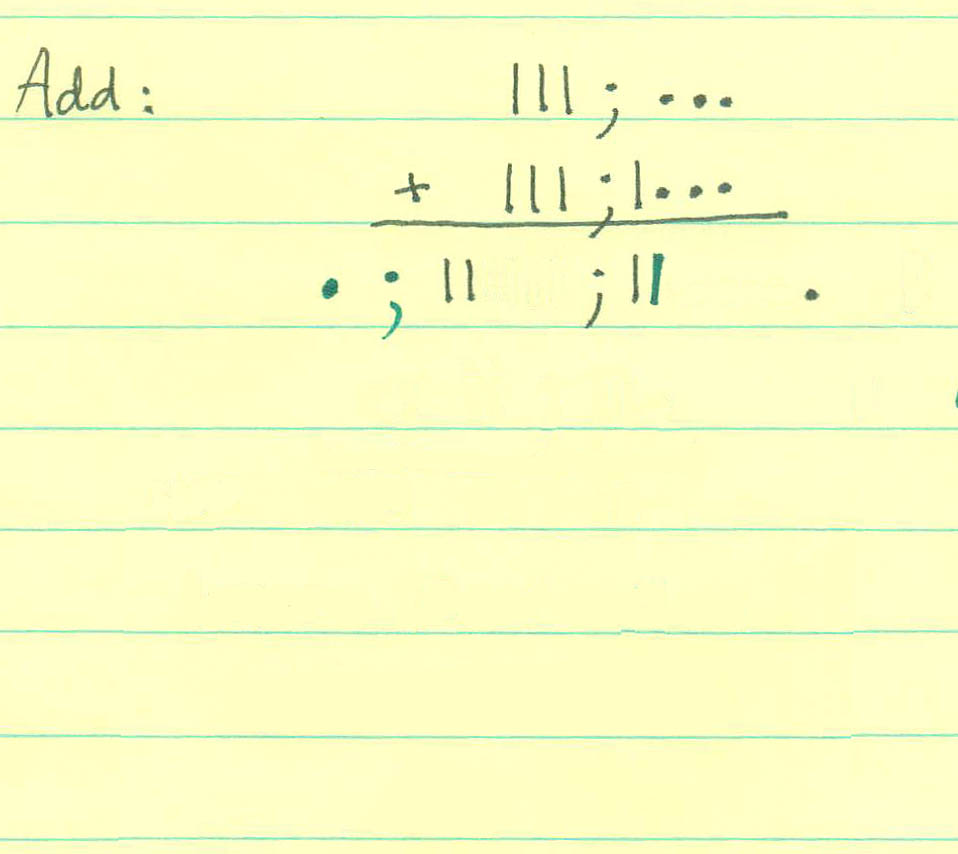 Add: ||| ; •••
+ ||| ; |•••
• ; || ; || •